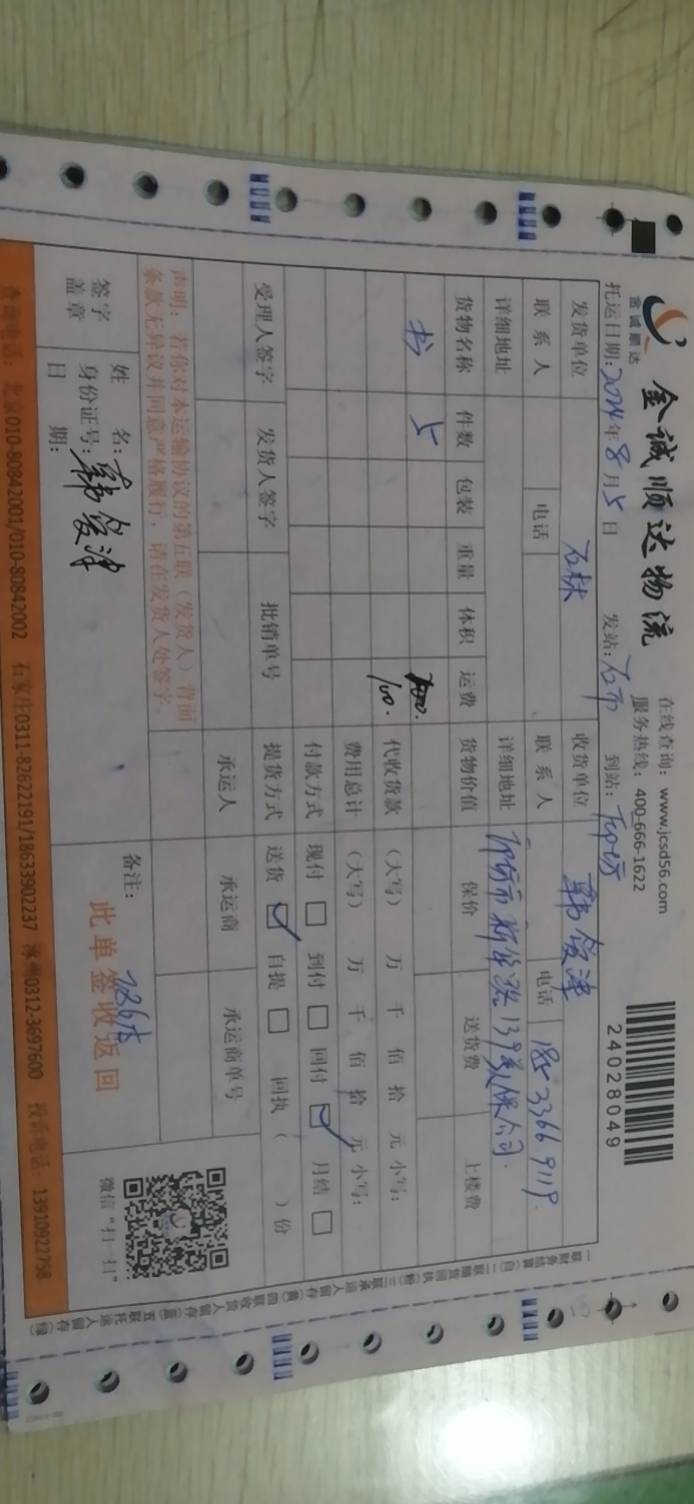 金诚顺达
金诚顺达物流
在线查询：www.jcsd56.com
服务热线：400-666-1622
24028049
托运日期：2024年8月5日 发站：石市 到站：
发货单位 收货单位 韩俊津
联系人 电话 联系人 电话 185 3366 9119
详细地址 详细地址 139号 公司
货物名称 件数 包装 重量 体积 运费 货物价值 保价 送货费 上楼费
书 5
100. 代收货款 （大写） 万 千 佰 拾 元 小写：
费用总计 （大写） 万 千 佰 拾 元 小写：
付款方式 现付 □ 到付 □ 回付 ☑ 月结 □
受理人签字 发货人签字 批销单号 提货方式 送货 ☑ 自提 □ 回执（ ）份
承运人 承运商 承运商单号
声明：若你对本运输协议的第五联（发货人）背面
条款无异议并同意严格履行，请在发货人处签字。
签字盖章
姓名：
身份证号：
日期：
韩俊津
备注：
此单签收返回
微信“扫一扫”
查询电话：北京010-80842001/010-80842002 石家庄0311-82622191/18633902237 涿州0312-3697600 投诉电话：13910922758
一联财务结算（白）二联随货回执（粉）三联承运人留存（黄）四联收货人留存（蓝）五联托运人留存（绿）